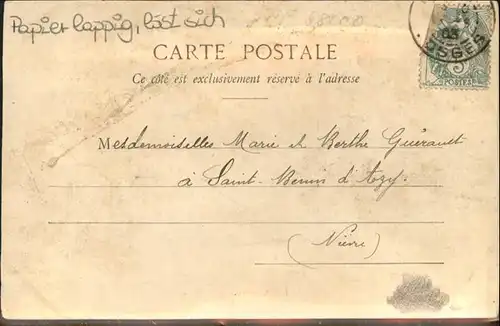 Papier lappig, löst sich
CARTE POSTALE
Ce côté est exclusivement réservé à l'adresse
Mesdemoiselles Marie et Berthe Guérault
à Saint-Benin d'Azy.
(Nièvre)
03
POSTES